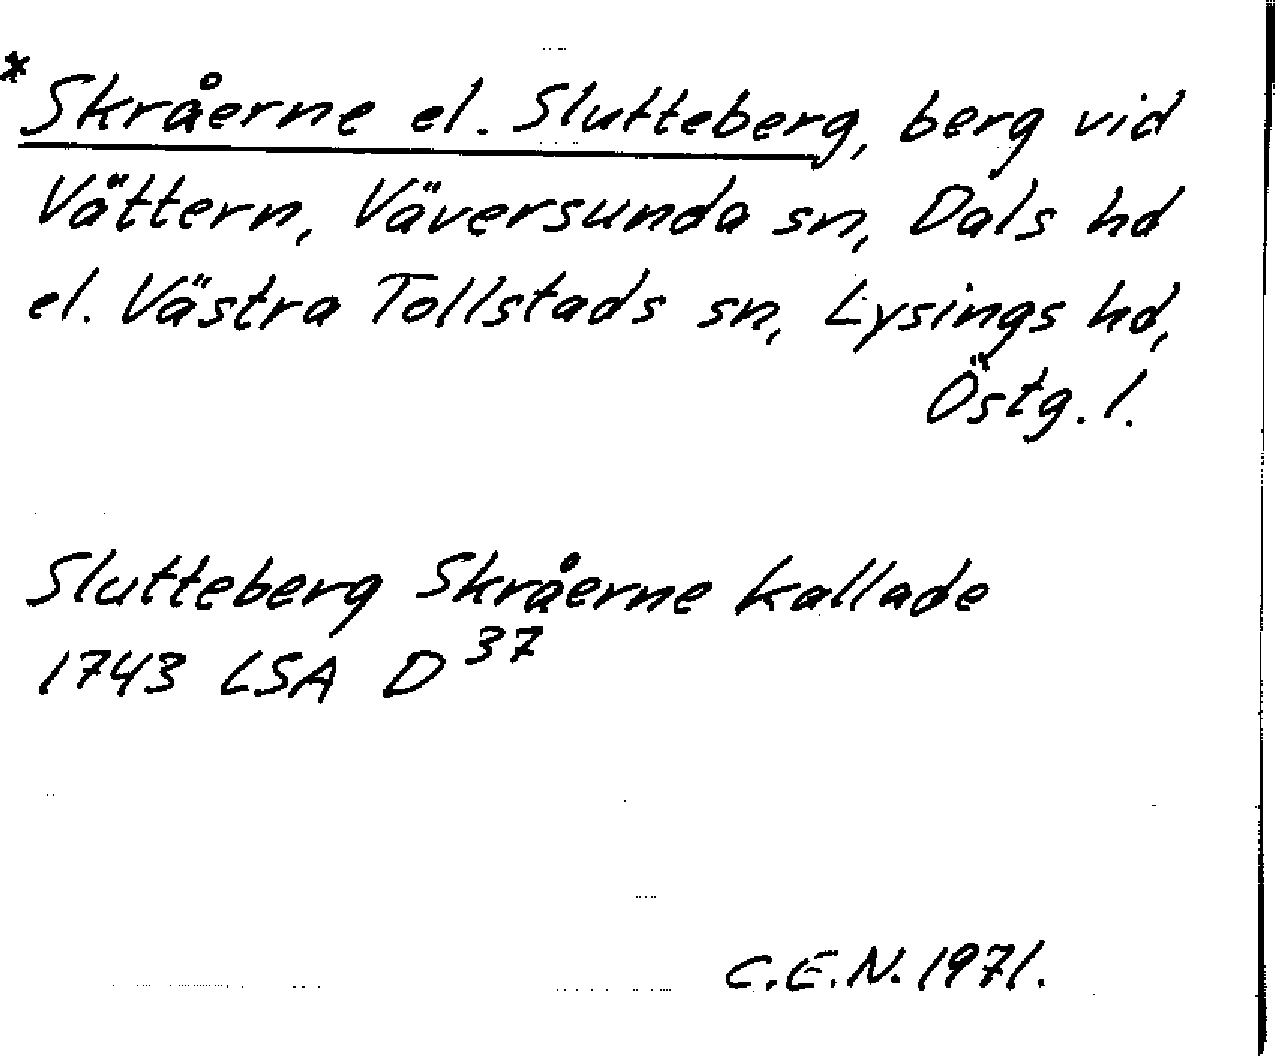 * Skråerne el. Slutteberg, berg vid
Vättern, Väversunda sn, Dals hd
el. Västra Tollstads sn, Lysings hd,
Östg. l.
Slutteberg Skråerne kallade
1743 LSA D 37
C.E.N. 1971.